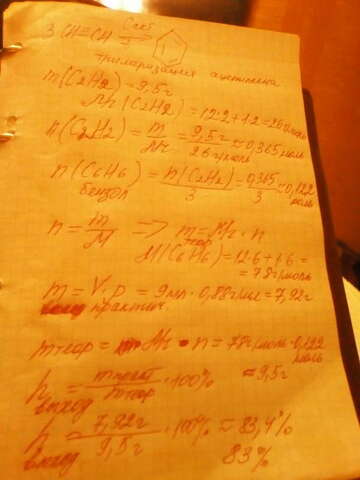 3 CH≡CH Cакт
тримеризация ацетилена
m(C2H2) = 9,5г
Mr(C2H2) = 12·2+1·2=26г/моль
n(C2H2) = m/Mr = 9,5г/26г/моль ≈ 0,365 моль
n(C6H6) = n(C2H2)/3 = 0,365/3 ≈ 0,122 моль
бензол
n = m/M → m = Mr · n
теор
M(C6H6) = 12·6+1·6 =
= 78г/моль
m = V·ρ = 9мл·0,88г/мл = 7,92г
практич.
mтеор = Mr · n = 78г/моль·0,122 моль
≈ 9,5г
h = mпракт/mтеор · 100%
выход
h = 7,92г/9,5г · 100% ≈ 83,4%
выход 83%